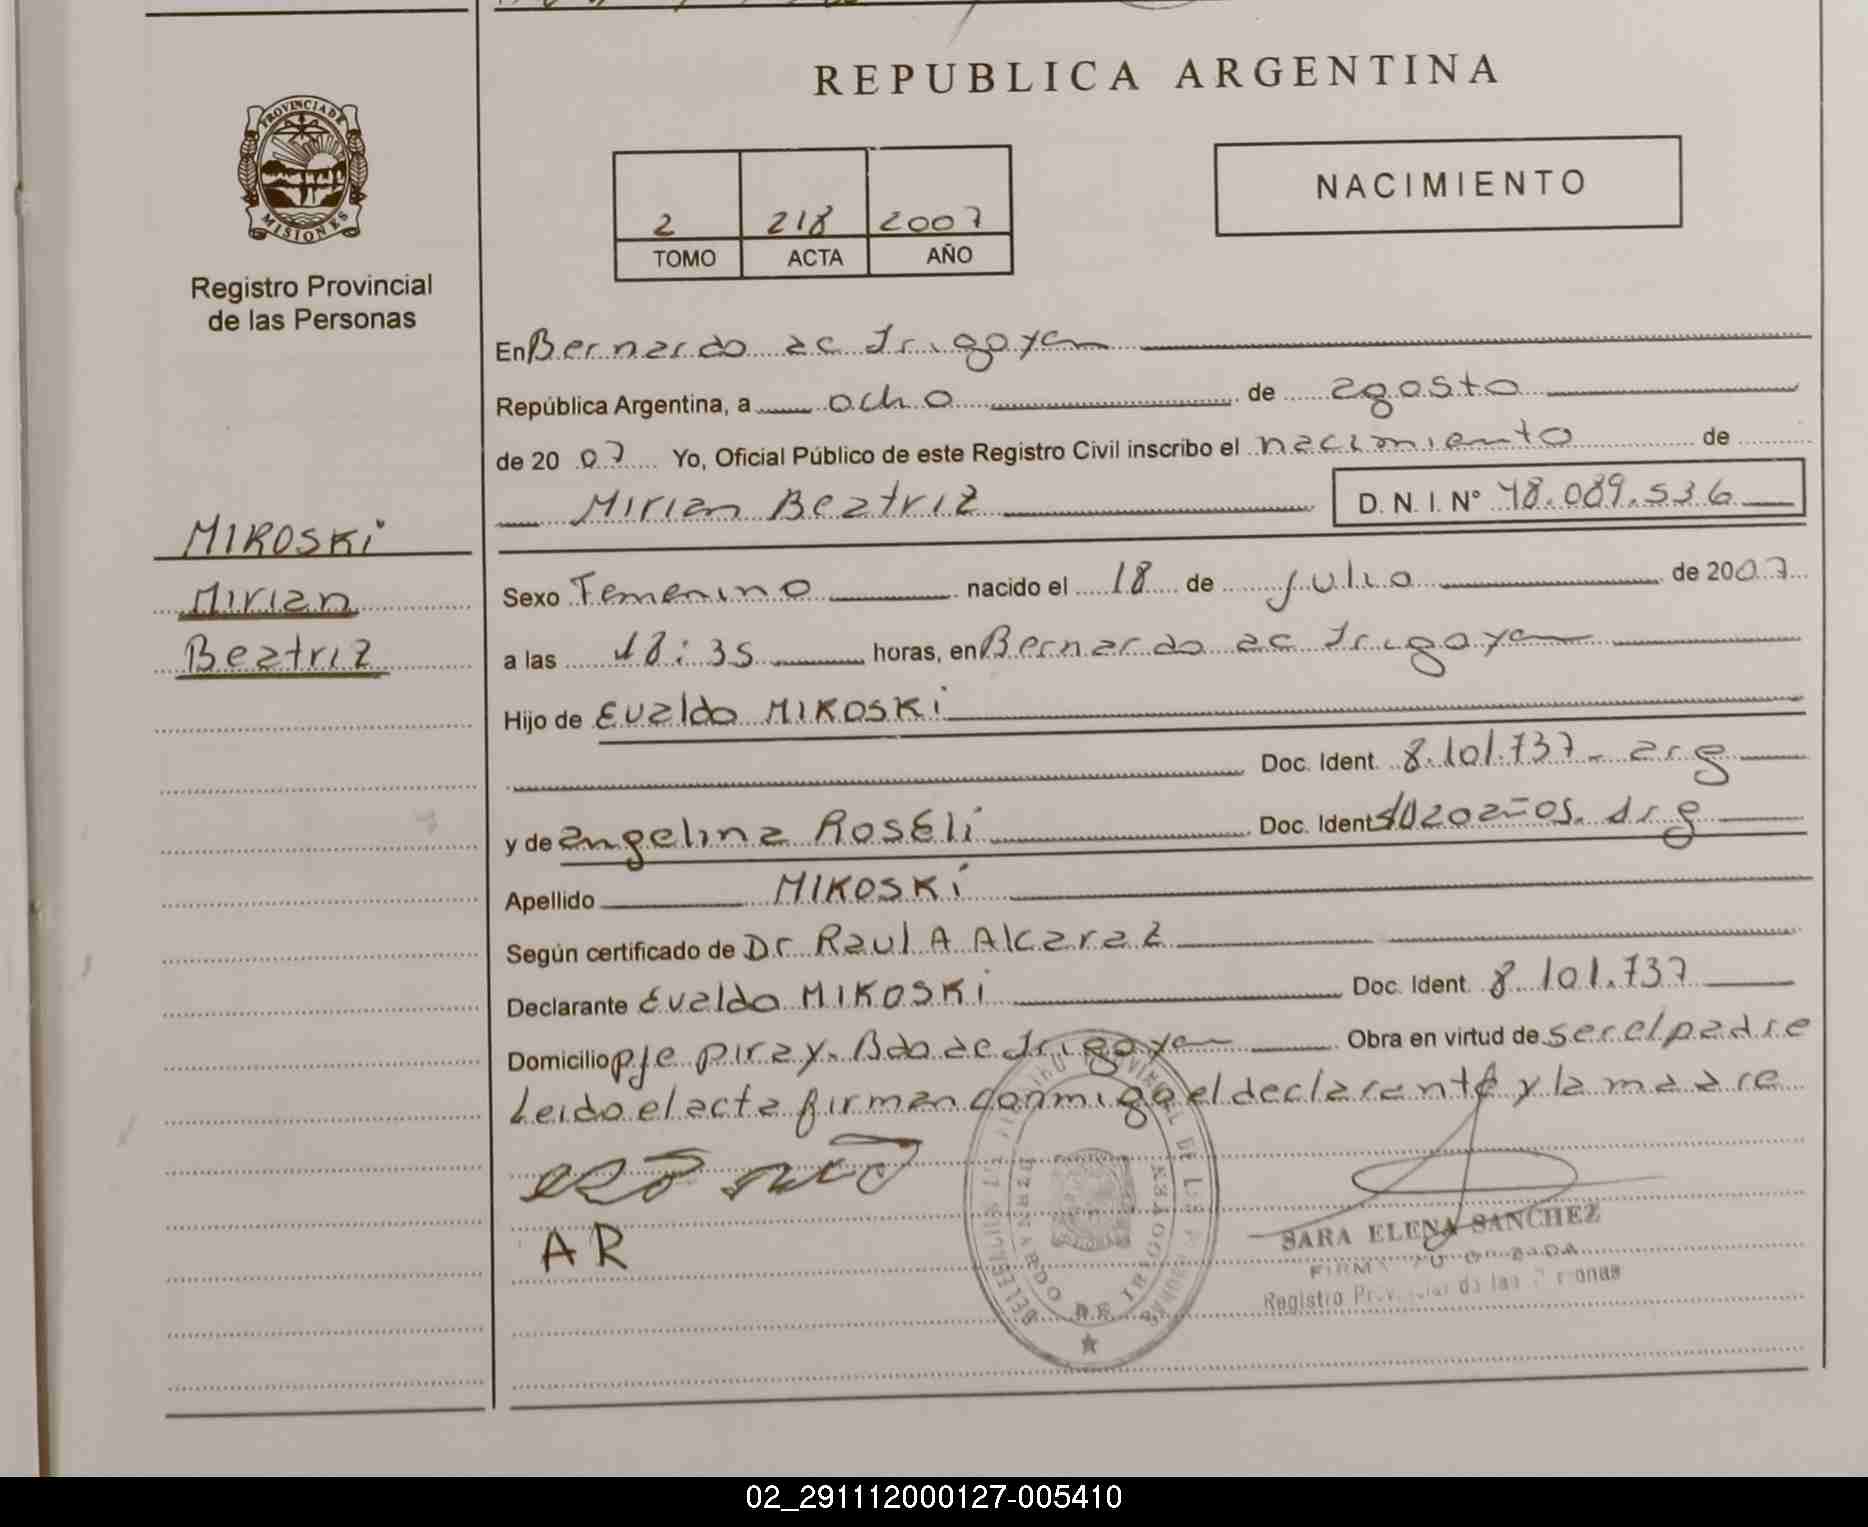 REPUBLICA ARGENTINA
PROVINCIA DE MISIONES
NACIMIENTO
2 218 2007
TOMO ACTA AÑO
Registro Provincial
de las Personas
En Bernardo de Irigoyen
República Argentina, a ocho de agosto
de 2007 Yo, Oficial Público de este Registro Civil inscribo el nacimiento de
Mirian Beatriz D. N. I. N° 48.089.536
MIROSKi
Mirian
Beatriz
Sexo Femenino nacido el 18 de julio de 2007
a las 18:35 horas, en Bernardo de Irigoyen
Hijo de Evaldo MIKOSKi
Doc. Ident. 8.101.737 - arg
y de angelina Roséli Doc. Ident arg
Apellido MIKOSKi
Según certificado de Dr Raul A Alcaraz
Declarante Evaldo MIKOSKi Doc. Ident. 8.101.737
Domicilio pje piray. Bdo de Irigoyen Obra en virtud de ser el padre
Leido el acta firman conmigo el declarante y la madre
AR
BERNARDO DE IRIGOYEN
SARA ELENA SANCHEZ
Registro
02_291112000127-005410